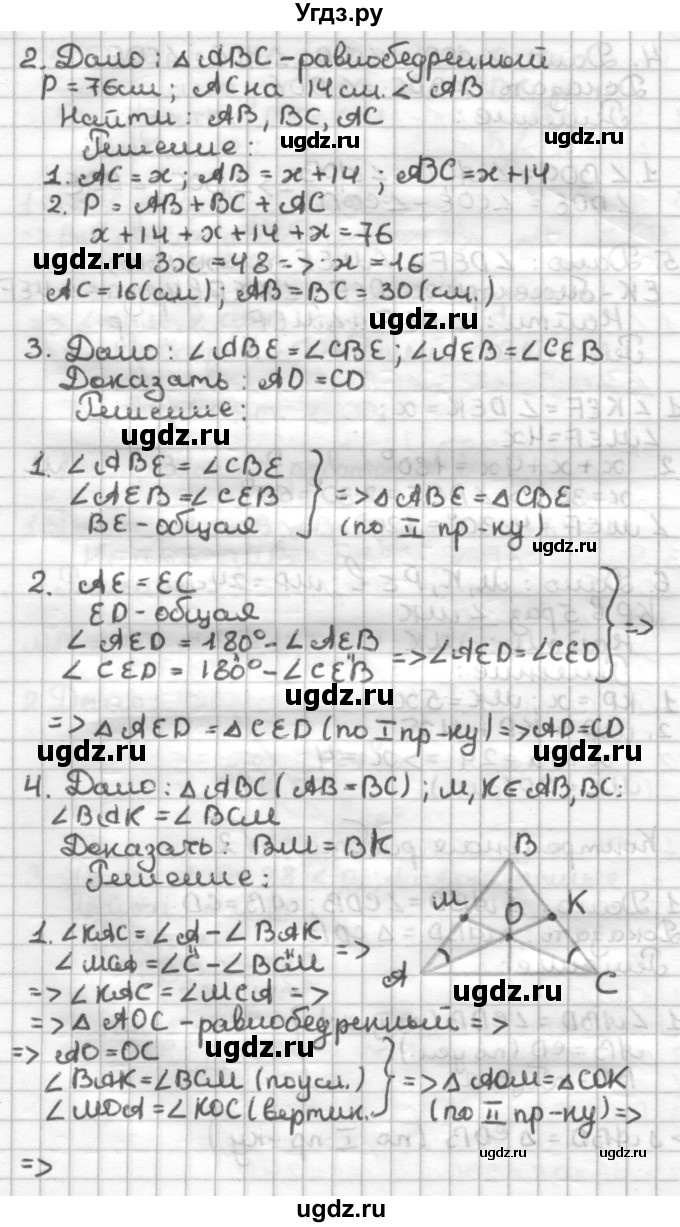 Угдз.ру
2. Дано: △ ABC - равнобедренный
P = 76 см; AC на 14 см. < AB
Найти: AB, BC, AC
ugdz.ru
ugdz.ru
Решение:
1. AC = x; AB = x + 14; BC = x + 14
2. P = AB + BC + AC
x + 14 + x + 14 + x = 76
ugdz.ru
3x = 48 => x = 16
ugdz.ru
AC = 16 (см); AB = BC = 30 (см.)
ugdz.ru
3. Дано: ∠ABE = ∠CBE; ∠AEB = ∠CEB
Доказать: AD = CD
Решение:
ugdz.ru
1. ∠ABE = ∠CBE
∠AEB = ∠CEB } => △ABE = △CBE
BE - общая (по II пр-ку)
ugdz.ru
2. AE = EC
ED - общая
∠AED = 180° - ∠AEB
∠CED = 180° - ∠CEB => ∠AED = ∠CED } =>
ugdz.ru
=> △AED = △CED (по I пр-ку) => AD = CD
ugdz.ru
ugdz.ru
4. Дано: △ABC (AB = BC); M, K ∈ AB, BC:
∠BAK = ∠BCM
Доказать: BM = BK
Решение:
B
M
O
K
A
C
1. ∠KAC = ∠A - ∠BAK
∠MCA = ∠C - ∠BCM =>
ugdz.ru
=> ∠KAC = ∠MCA =>
=> △ AOC - равнобедренный =>
ugdz.ru
=> AO = OC
∠BAK = ∠BCM (по усл.) } => △AOM = △COK
∠MOA = ∠KOC (вертик.) (по II пр-ку) =>
ugdz.ru
ugdz.ru
=>
ugdz.ru